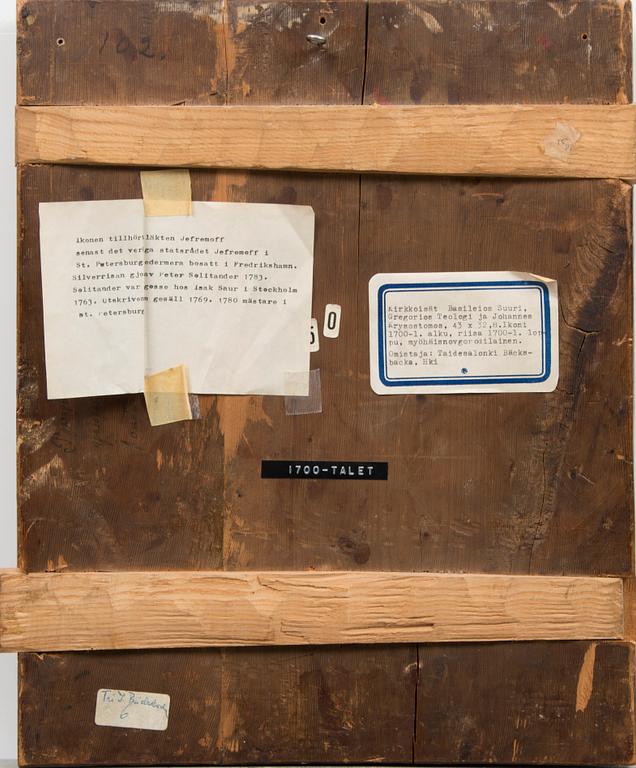 102.
Ikonen tillhört släkten Jefremoff
senast det verkliga statsrådet Jefremoff i
St. Petersburg sedermera bosatt i Fredrikshamn.
Silverrisan gjord av Peter Solitander 1783.
Solitander var gosse hos Isak Saur i Stockholm
1763. Utskriven gesäll 1769. 1780 mästare i
St. Petersburg
0
Kirkkoisät Basileios Suuri,
Gregorios Teologi ja Johannes
Krysostomos, 43 x 32,8. Ikoni
1700-l. alku, riisa 1700-l. lop-
pu, myöhäisnovgorodilainen.
Omistaja: Taidesalonki Bäcks-
backa, Hki
1700-TALET
6